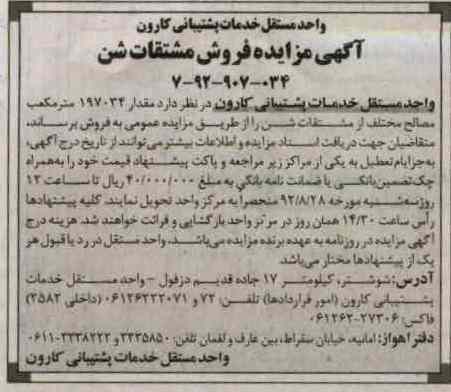 واحد مستقل خدمات پشتیبانی کارون
آگهی مزایده فروش مشتقات شن
۷-۹۲-۹۰۷-۰۳۴
واحد مستقل خدمات پشتیبانی کارون در نظر دارد مقدار ۱۹۷۰۳۴ مترمکعب
مصالح مختلف از مشتقات شن را از طریق مزایده عمومی به فروش برساند،
متقاضیان جهت دریافت اسناد مزایده و اطلاعات بیشتر می‌توانند از تاریخ درج آگهی،
به‌جز ایام تعطیل به یکی از مراکز زیر مراجعه و پاکت پیشنهاد قیمت خود را به‌همراه
چک تضمین بانکی یا ضمانت نامه بانکی به مبلغ ۴۰/۰۰۰/۰۰۰ ریال تا ساعت ۱۳
روز سه‌شنبه مورخه ۹۲/۸/۲۸ منحصرا به مرکز واحد تحویل نمایند. کلیه پیشنهادها
رأس ساعت ۱۴/۳۰ همان روز در مرکز واحد بازگشایی و قرائت خواهند شد. هزینه درج
آگهی مزایده در روزنامه به عهده برنده مزایده می‌باشد. واحد مستقل در رد یا قبول هر
یک از پیشنهادها مختار می‌باشد.
آدرس: شوشتر، کیلومتر ۱۷ جاده قدیم دزفول - واحد مستقل خدمات
پشتیبانی کارون (امور قراردادها) تلفن: ۷۲ و ۰۶۱۲۶۲۲۲۰۷۱ (داخلی ۲۵۸۲)
فاکس: ۲۷۳۰۶-۰۶۱۲۶۲
دفتر اهواز: امانیه، خیابان سقراط، بین عارف و لقمان تلفن: ۳۳۳۵۸۵۰ و ۳۳۳۸۲۲۲-۰۶۱۱
واحد مستقل خدمات پشتیبانی کارون